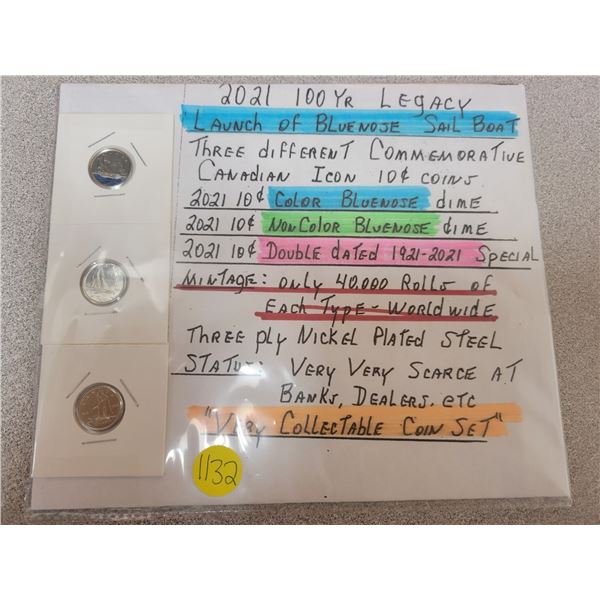 2021 100 YR LEGACY
"LAUNCH OF BLUENOSE SAIL BOAT
THREE dIFFERENT COMMEMORATIVE
CANADIAN ICON 10¢ COINS.
2021 10¢ COLOR BLUENOSE dIME
2021 10¢ NON COLOR BLUENOSE dIME
2021 10¢ DOUBLE dATED 1921-2021 SPECIAL
MINTAGE: ONLY 40,000 ROLLS OF
EACH TYPE - WORLDWIDE
THREE PLY NICKEL PLATED STEEL
STATUS: VERY VERY SCARCE AT
BANKS, DEALERS, ETC
"VERY COLLECTABLE COIN SET"
1132